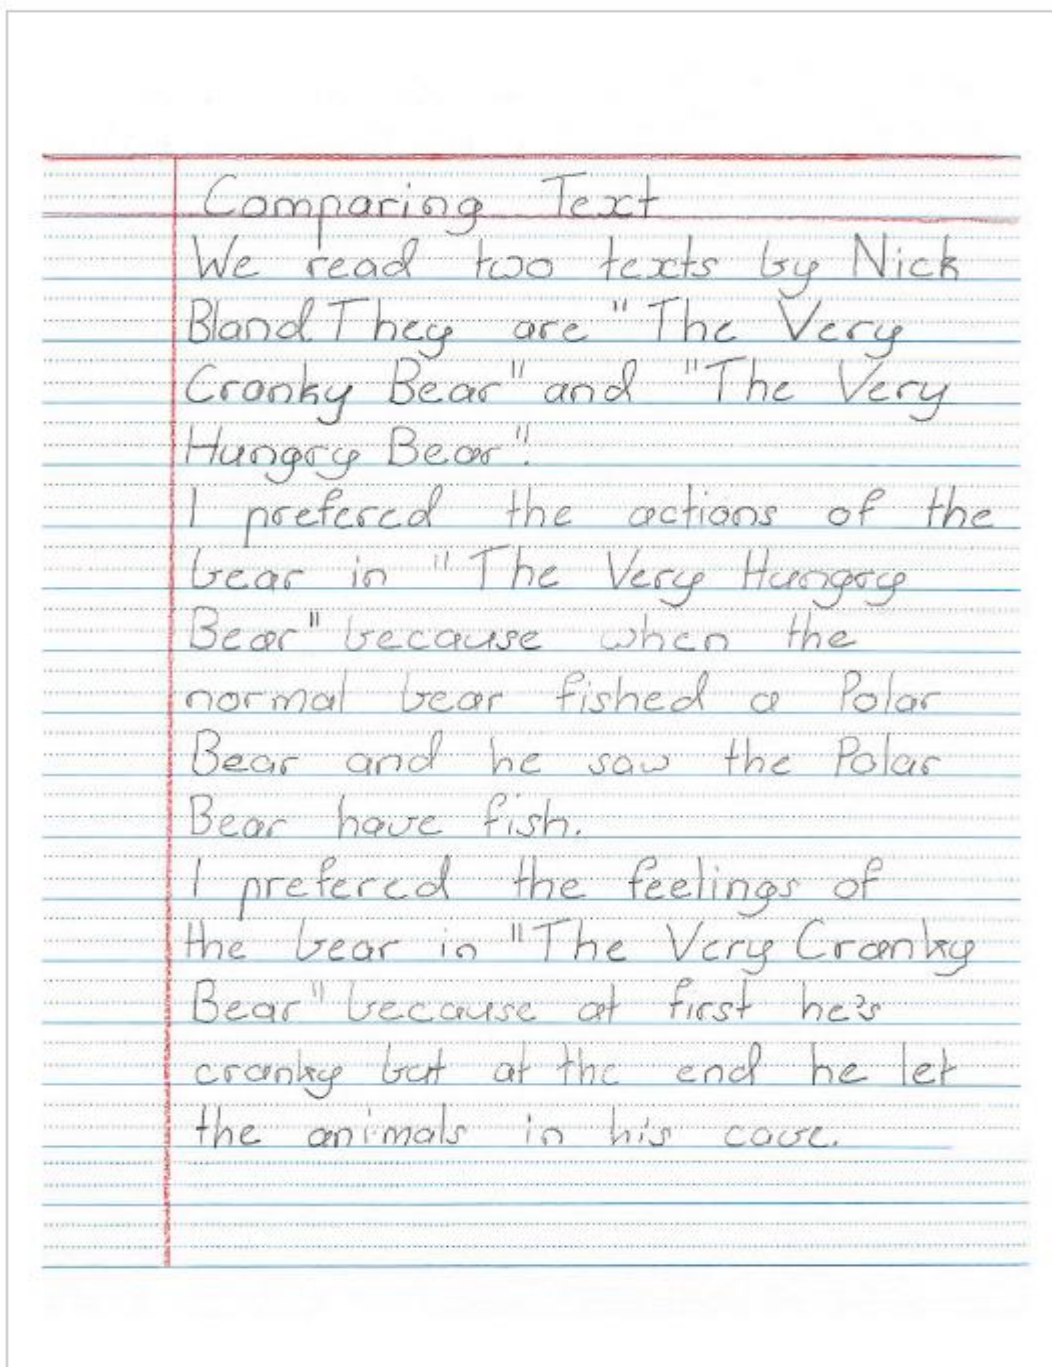 Comparing Text
We read two texts by Nick
Bland. They are "The Very
Cranky Bear" and "The Very
Hungry Bear".
I prefered the actions of the
bear in "The Very Hungry
Bear" because when the
normal bear fished a Polar
Bear and he saw the Polar
Bear have fish.
I prefered the feelings of
the bear in "The Very Cranky
Bear" because at first he's
cranky but at the end he let
the animals in his cave.